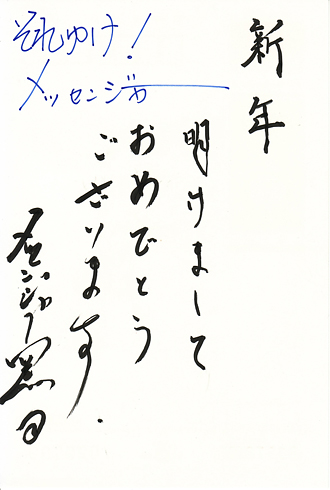 それゆけ!
メッセンジャー
新年
明けまして
おめでとう
ございます.
メッセンジャー